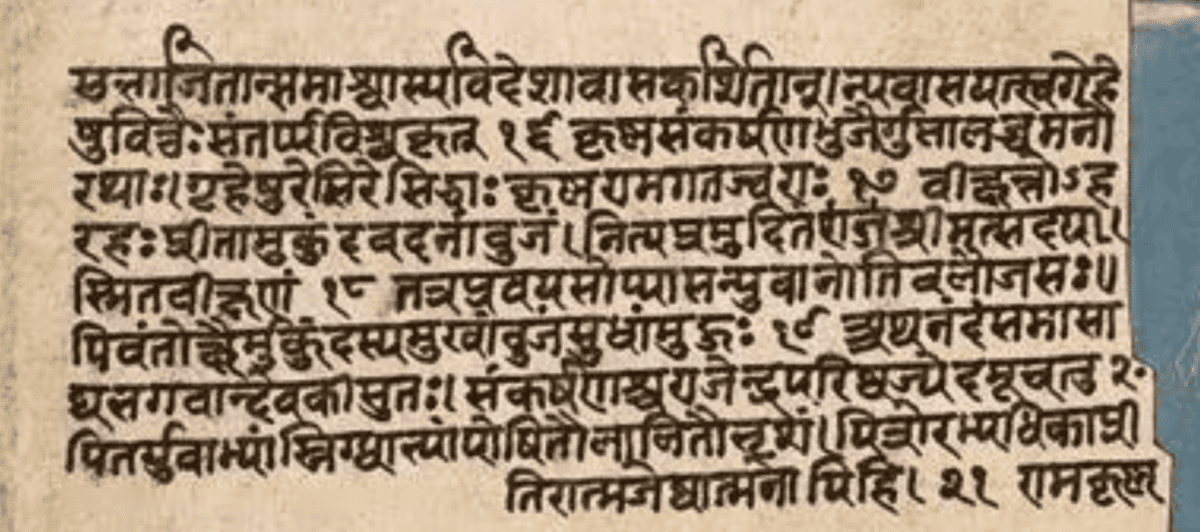 सभाजितान्समाश्वास्य विदेशावासकर्शितान्। न्यवासयत्स्वगेहे
षु वित्तैः संतर्प्य विश्वकृत् १६ कृष्णसंकर्षणभुजैर्गुप्तालब्धमनो
रथाः। गृहेषु रेमिरे सिद्धाः कृष्णरामगतज्वराः १७ वीक्षंतोऽह
रहः प्रीता मुकुंदवदनांबुजं। नित्यप्रमुदितं श्रीमत्सदया।
स्मितवीक्षणं १८ तत्र प्रवयसोप्यासन्युवानोतिबलौजसः॥
पिबंतोक्षैर्मुकुंदस्य मुखांबुजसुधां मुहुः १९ अथ नंदं समासा
द्य भगवान्देवकीसुतः। संकर्षणश्च राजेन्द्र परिष्वज्येदमूचतुः २०
पितर्युवाभ्यां स्निग्धाभ्यां पोषितौ लालितौ भृशं। पित्रोरभ्यधिका प्री
तिरात्मजेष्वात्मनोपि हि। २१ रामकृष्ण